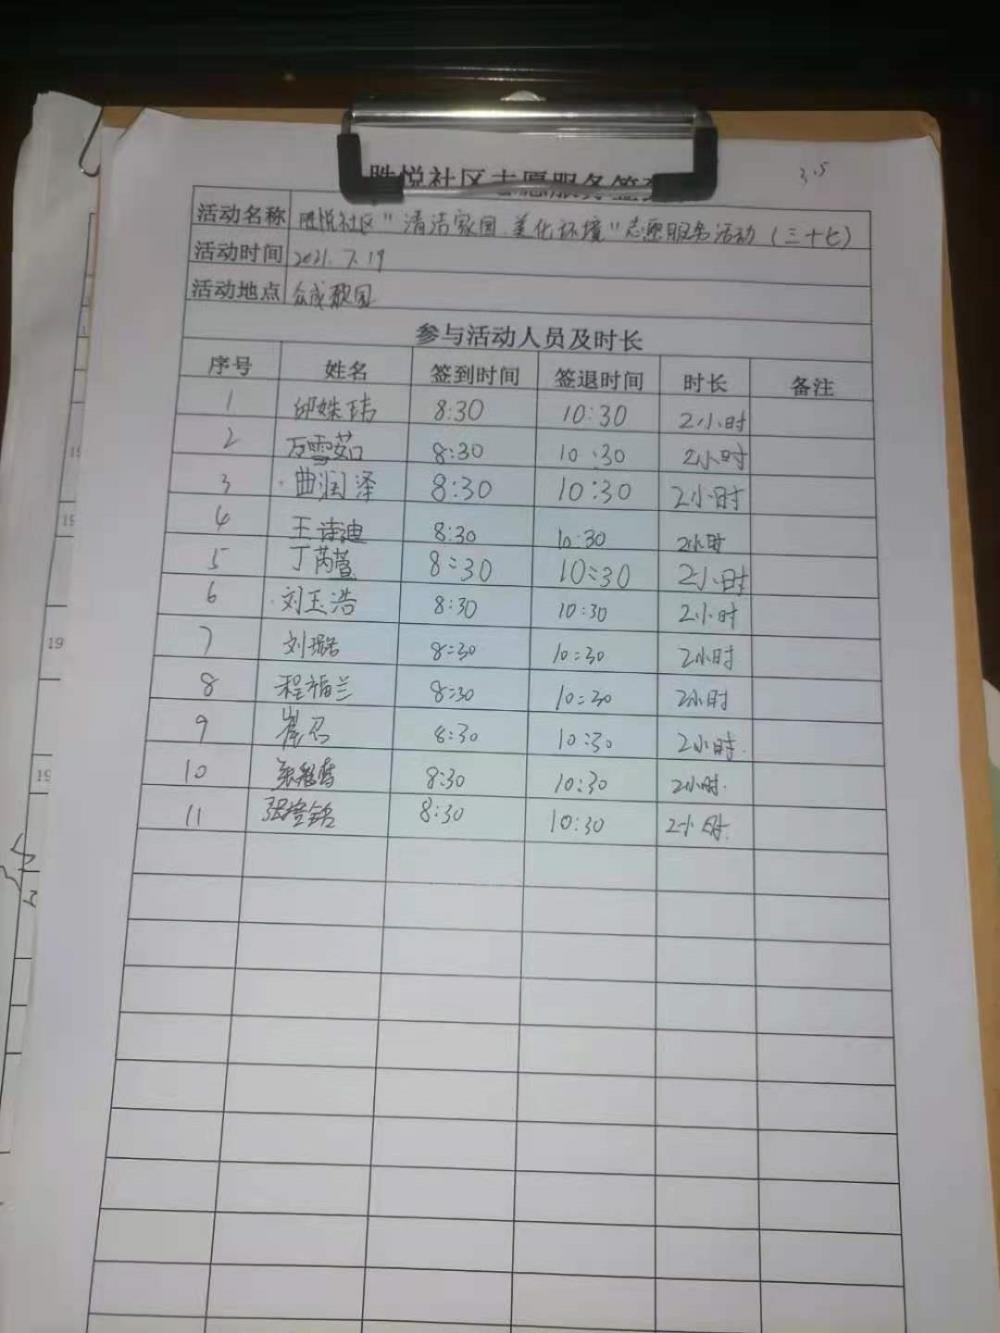 胜悦社区志愿服务签
3.5
活动名称 胜悦社区"清洁家园、美化环境"志愿服务活动(三十七)
活动时间 2021.7.19
活动地点 众成歌园
参与活动人员及时长
序号 姓名 签到时间 签退时间 时长 备注
1 邱姝玮 8:30 10:30 2小时
2 万雪茹 8:30 10:30 2小时
3 曲润泽 8:30 10:30 2小时
4 王诗迪 8:30 10:30 2小时
5 丁芮萱 8:30 10:30 2小时
6 刘玉浩 8:30 10:30 2小时
7 刘璐 8:30 10:30 2小时
8 程福兰 8:30 10:30 2小时
9 崔召 8:30 10:30 2小时
10 8:30 10:30 2小时
11 8:30 10:30 2小时
19
19
19
19